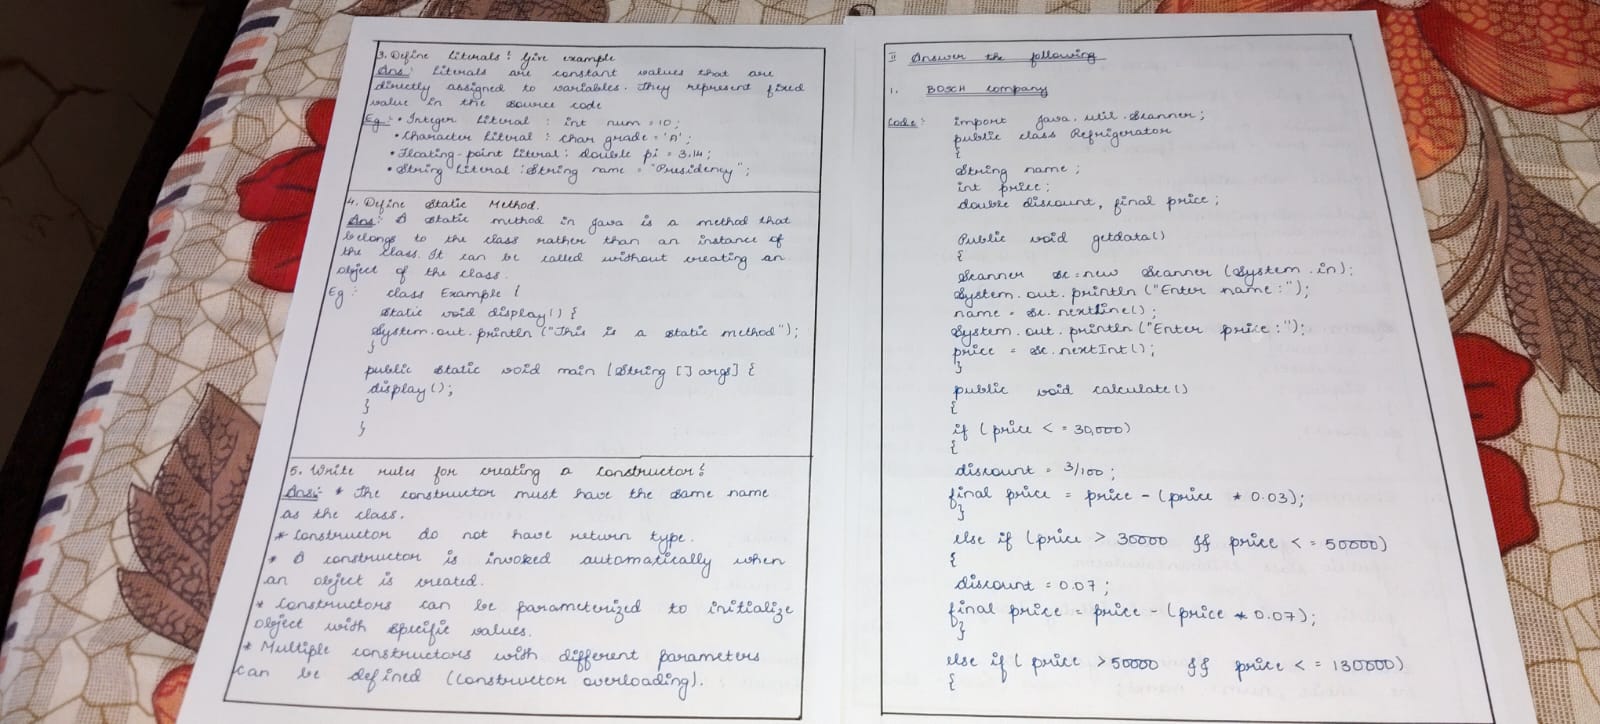 3. Define Literals? Give example
Ans: Literals are constant values that are
directly assigned to variables. They represent fixed
value in the source code
Eg:- • Integer Literal : int num = 10;
• Character Literal : char grade = 'A';
• Floating-point Literal : double pi = 3.14;
• String Literal : String name = "Presidency";
4. Define Static Method.
Ans:- A static method in Java is a method that
belongs to the class rather than an instance of
the class. It can be called without creating an
object of the class.
Eg: class Example {
static void display() {
System.out.println ("This is a static method");
}
public static void main (String [] args] {
display();
}
}
5. Write rules for creating a constructor?
Ans:- * The constructor must have the same name
as the class.
* Constructor do not have return type.
* A constructor is invoked automatically when
an object is created.
* Constructors can be parameterized to initialize
object with specific values.
* Multiple constructors with different parameters
can be defined (constructor overloading).
II Answer the following
1. BOSCH company
Code: import java.util.Scanner;
public class Refrigerator
{
String name;
int price;
double discount, final price;
Public void getdata()
{
Scanner sc=new Scanner (System.in);
System.out.println ("Enter name:");
name = sc.nextline();
System.out.println ("Enter price:");
price = sc.nextInt();
}
public void calculate()
{
if (price < = 30,000)
{
discount = 3/100;
final price = price - (price * 0.03);
}
else if (price > 30000 && price < = 50000)
{
discount = 0.07;
final price = price - (price * 0.07);
}
else if ( price > 50000 && price < = 130000)
{